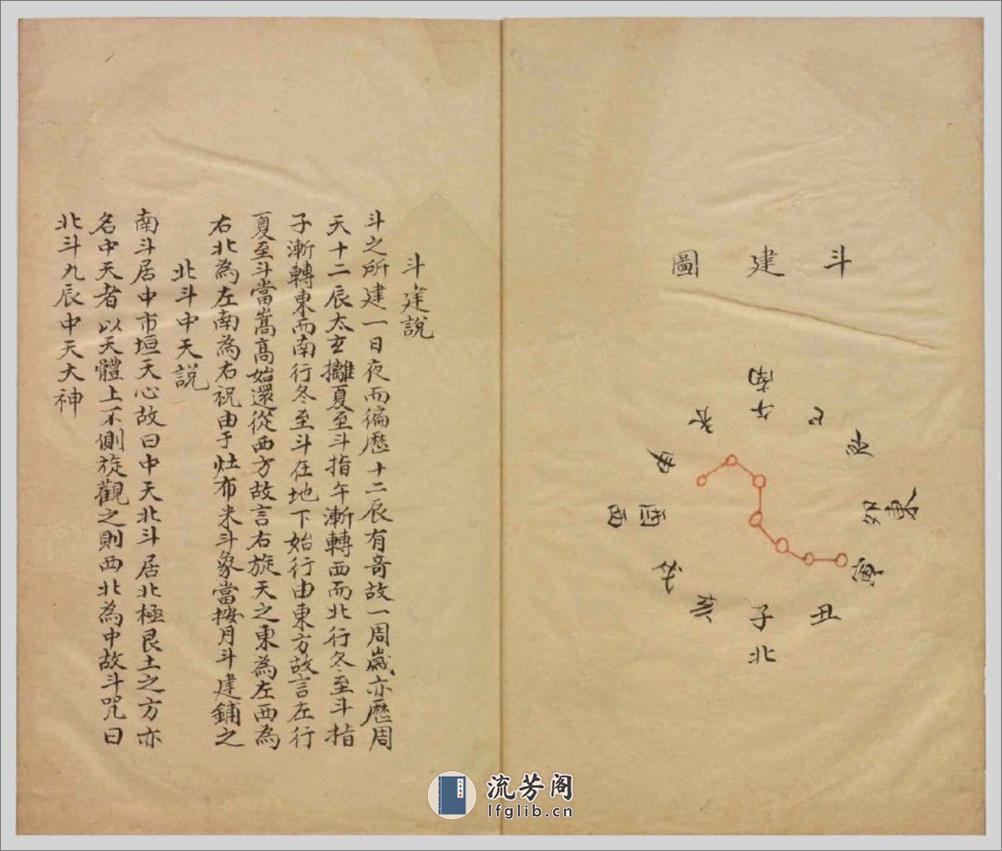 斗建圖
南
午
巳
辰
卯東
寅
丑
子
北
亥
戌
酉西
申
未
斗建說
斗之所建一日夜而徧歷十二辰有竒故一周歲亦歷周
天十二辰太玄攡夏至斗指午漸轉西而北行冬至斗指
子漸轉東而南行冬至斗在地下始行由東方故言左行
夏至斗當嵩高始還從西方故言右旋天之東為左西為
右北為左南為右祝由于灶布米斗象當按月斗建鋪之
北斗中天說
南斗居中市垣天心故曰中天北斗居北極艮土之方亦
名中天者以天體上不側旋觀之則西北為中故斗咒曰
北斗九辰中天大神
流芳阁
lfglib.cn